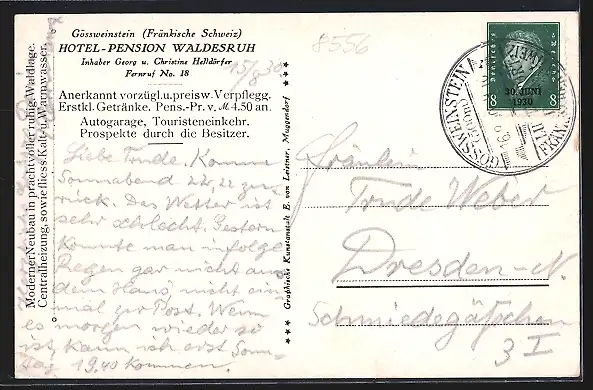 Gössweinstein (Fränkische Schweiz)
HOTEL-PENSION WALDESRUH
Inhaber Georg u. Christine Helldörfer
Fernruf No. 18
Anerkannt vorzügl.u.preisw.Verpflegg.
Erstkl.Getränke. Pens.-Pr. v. M 4.50 an.
Autogarage, Touristeneinkehr.
Prospekte durch die Besitzer.
Moderner Neubau in prachtvoller ruhig. Waldlage.
Centralheizung, sowie fliess. Kalt- u. Warmwasser.
8556
15/8 30
Liebe Trude. Komme
Sonnabend 22,22 zu-
rück. Das Wetter ist
sehr schlecht. Gestern
konnte man infolge
Regen gar nicht aus
dem Haus, nicht ein-
mal zur Post. Wenn
es morgen wieder so
ist, kann ich erst Sonn-
tag 19.40 kommen.
*** Graphische Kunstanstalt E. von Leistner, Muggendorf ***
Deutsches Reich
8 8
30. JUNI
1930
GÖSSWEINSTEIN
Fräulein
Trude Weber
Dresden-N.
Schmiedegäßchen
3 I